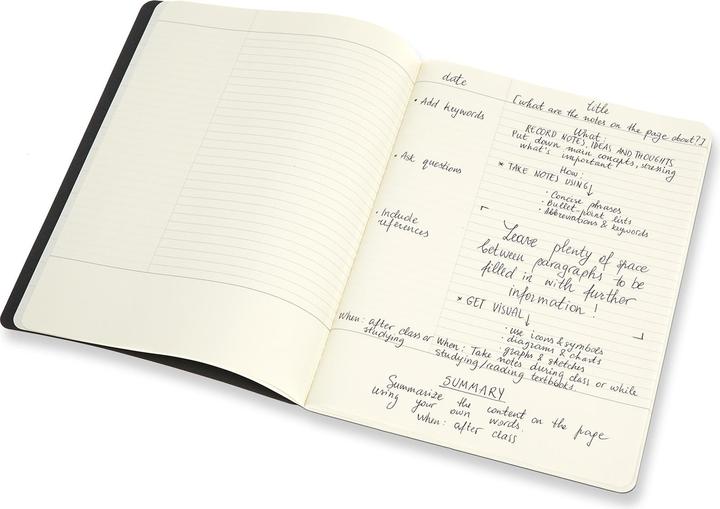 date
title
[what are the notes on the page about?]
• Add keywords
• Ask questions
• Include
references
When: after class or
studying
What:
RECORD NOTES, IDEAS AND THOUGHTS
Put down main concepts, stressing
what's important
How:
* TAKE NOTES USING ↓
• Concise phrases
• Bullet-point lists
• Abbreviations & keywords
Leave plenty of space
between paragraphs to be
filled in with further
information!
* GET VISUAL ↓
• use icons & symbols
• diagrams & charts
• graphs & sketches
When: Take notes during class or while
studying/reading textbooks.
SUMMARY
Summarize the content on the page
using your own words.
When: after class